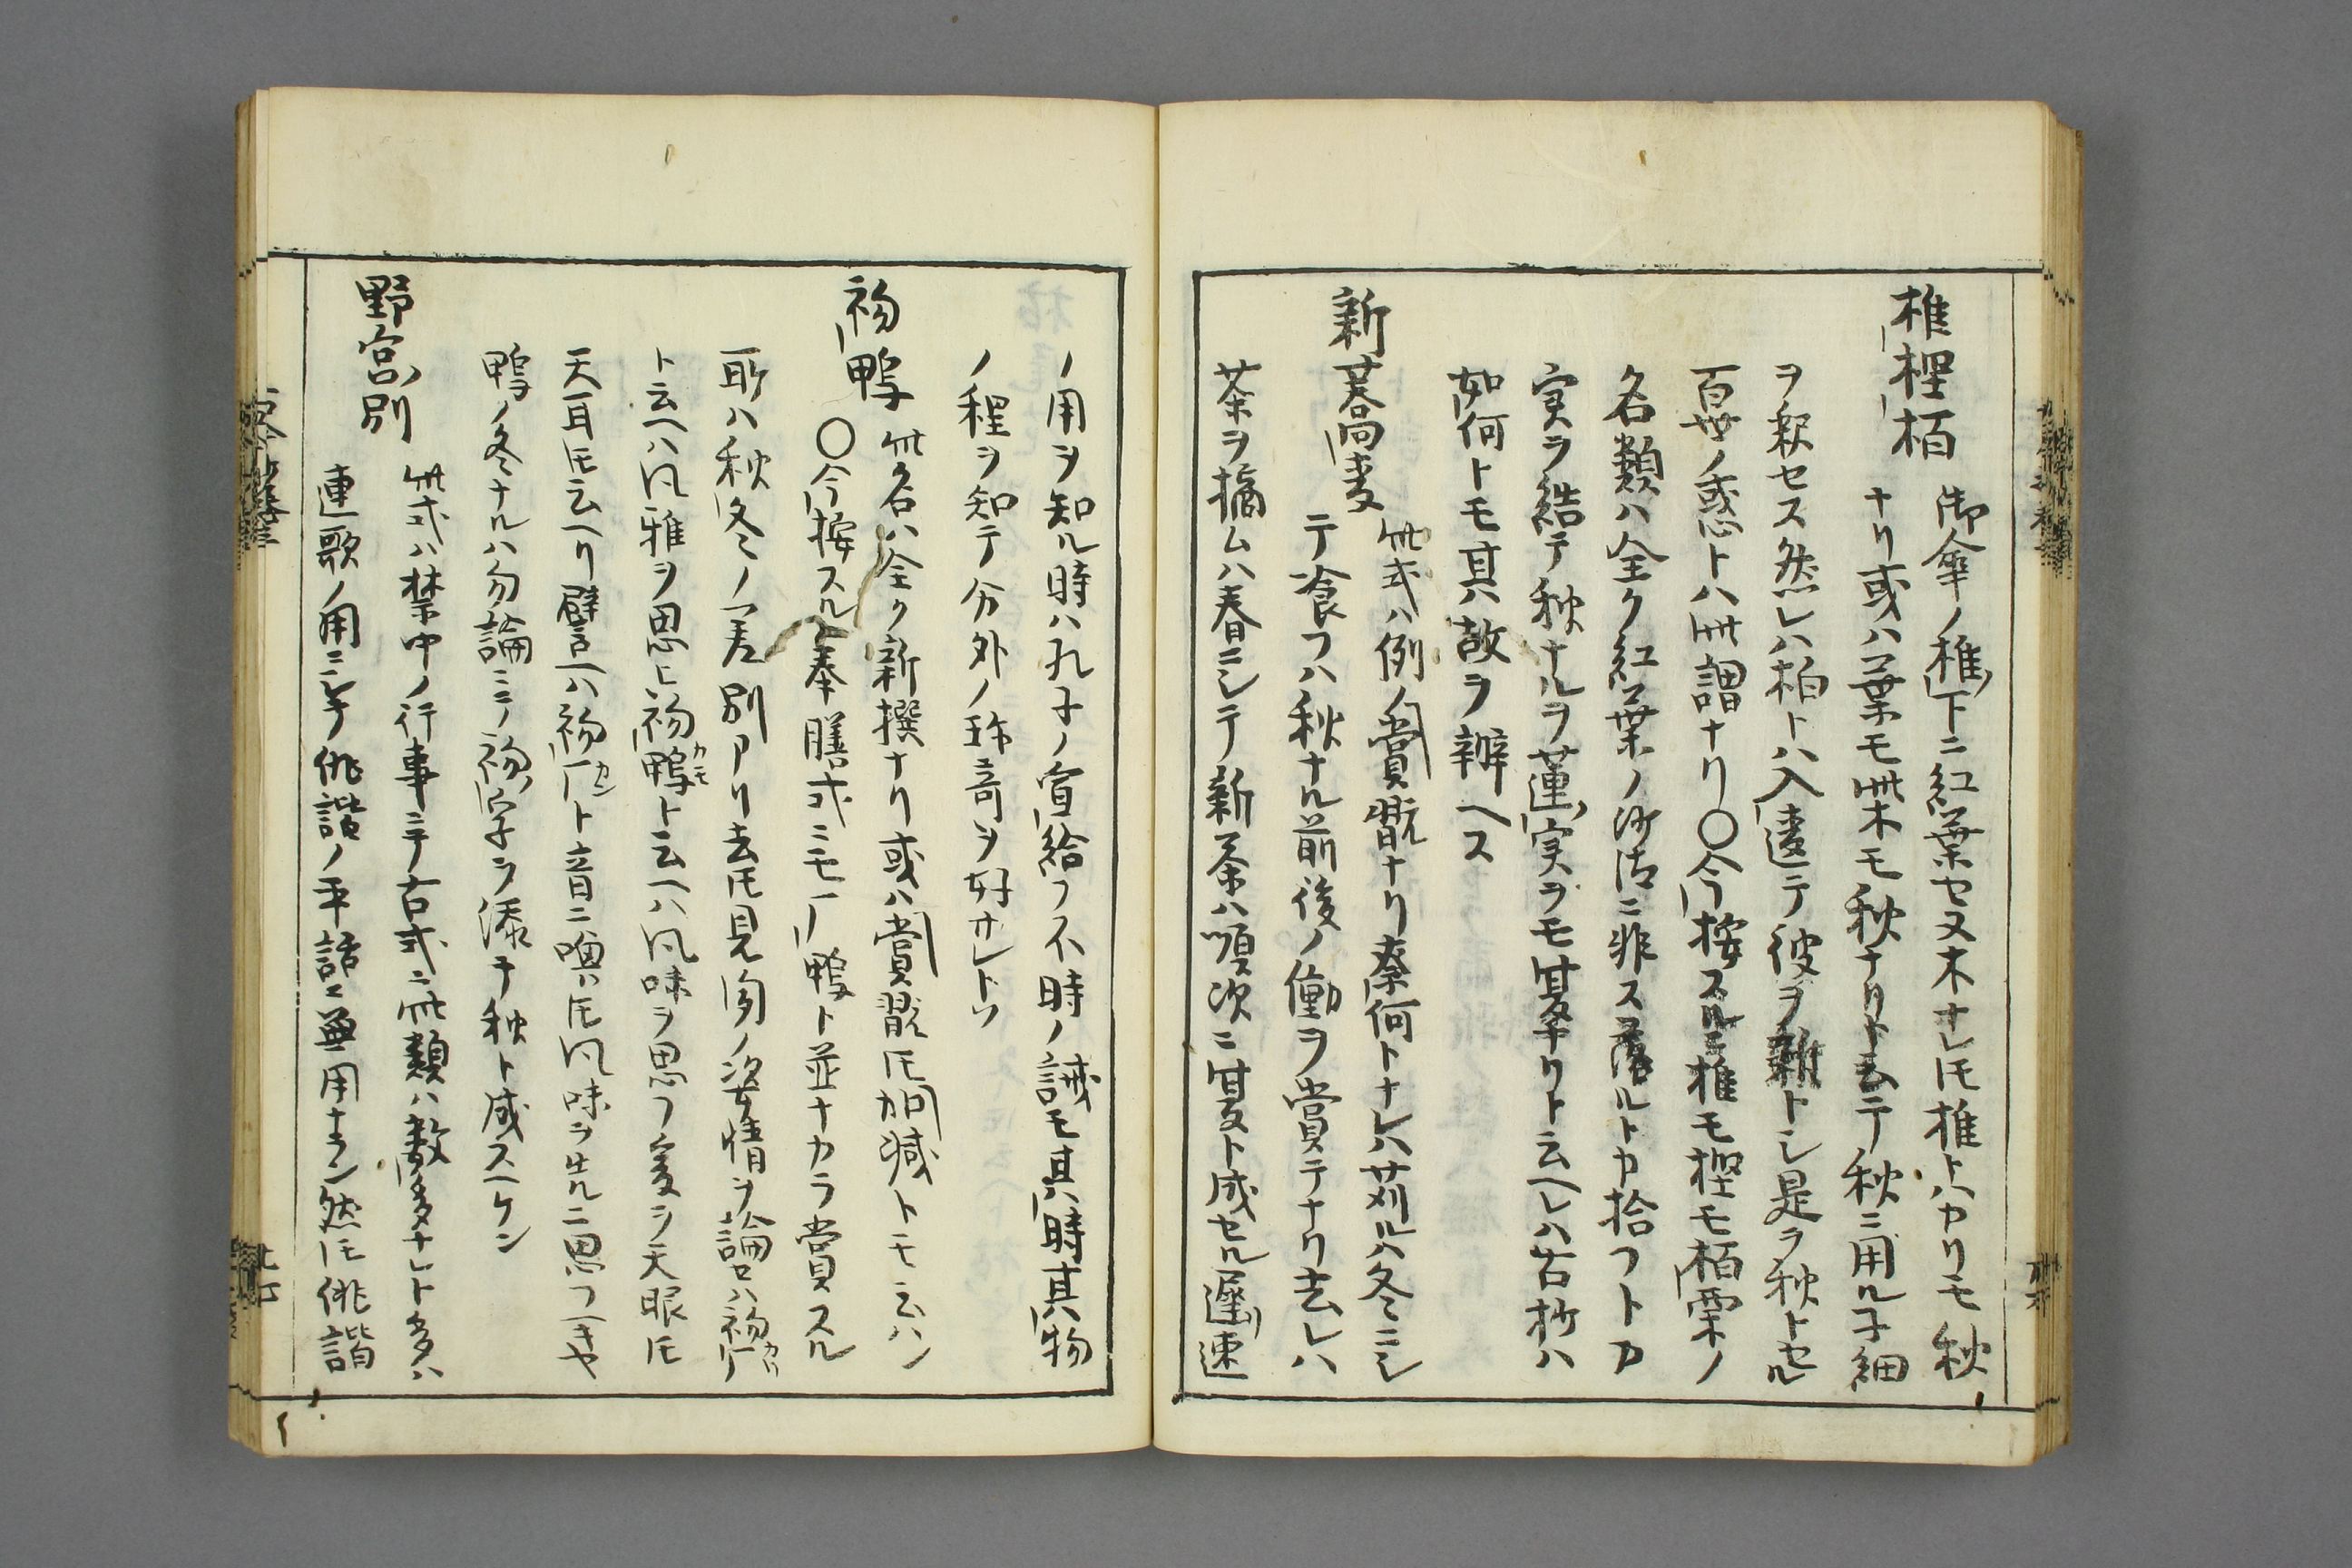 椎樫栢 御傘ノ椎ノ下ニ紅葉セヌ木ナレ𪜈椎トハカリモ秋
ナリ或ハ葉モ此木モ秋ナリト云テ秋ニ用ル子細
ヲ釈セス然レハ栢トハ入違テ彼ヲ雑トシ是ラ秋トセル
百世ノ惑トハ此謂ナリ〇今按スルニ椎モ樫モ栢栗ノ
名類ハ全ク紅葉ノ沙汰ニ非ス落ルトカ拾フトカ
実ラ結テ秋ナルヲ蓮ノ実ラモ夏ナリト云ヘレハ古抄ハ
如何トモ其故ラ辨ヘス
新蕎麦 此式ハ例ノ賞翫ナリ奈何トナレハ苅ルハ冬ニシ
テ食フハ秋ナル前後ノ働ラ賞テナリ去レハ
茶ヲ摘ムハ春ニシテ新茶ハ順次ニ夏ト成セル遅速
ノ用ヲ知ル時ハ孔子ノ宣給フ不時ノ誡モ其時其物
ノ程ヲ知テ分外ノ珎奇ヲ好サレトソ
初鴨 此名ハ全ク新撰ナリ或ハ賞翫𪜈加減トモ云ハン
〇今按スルニ奉膳式ニモ厂鴨ト並ナカラ賞スル
所ハ秋冬ノ差別アリ去𪜈見聞ノ姿情ヲ論セハ初厂
ト云ヘハ風雅ヲ思ヒ初鴨カモト云ヘハ風味ヲ思フ爰ラ天眼𪜈
天耳𪜈云ヘリ譬ヘハ初厂カント音ニ喚ハ𪜈風味ラ先ルニ思フヘキヤ
鴨ノ冬ナルハ勿論ニテ初ノ字ラ添テ秋ト成スヘケン
野宮別 此式ハ禁中ノ行事ニテ古式ニ此類ハ数多ナレト多ハ
連歌ノ用ニシテ俳諧ノ平話ニ無用ナラン然𪜈俳諧